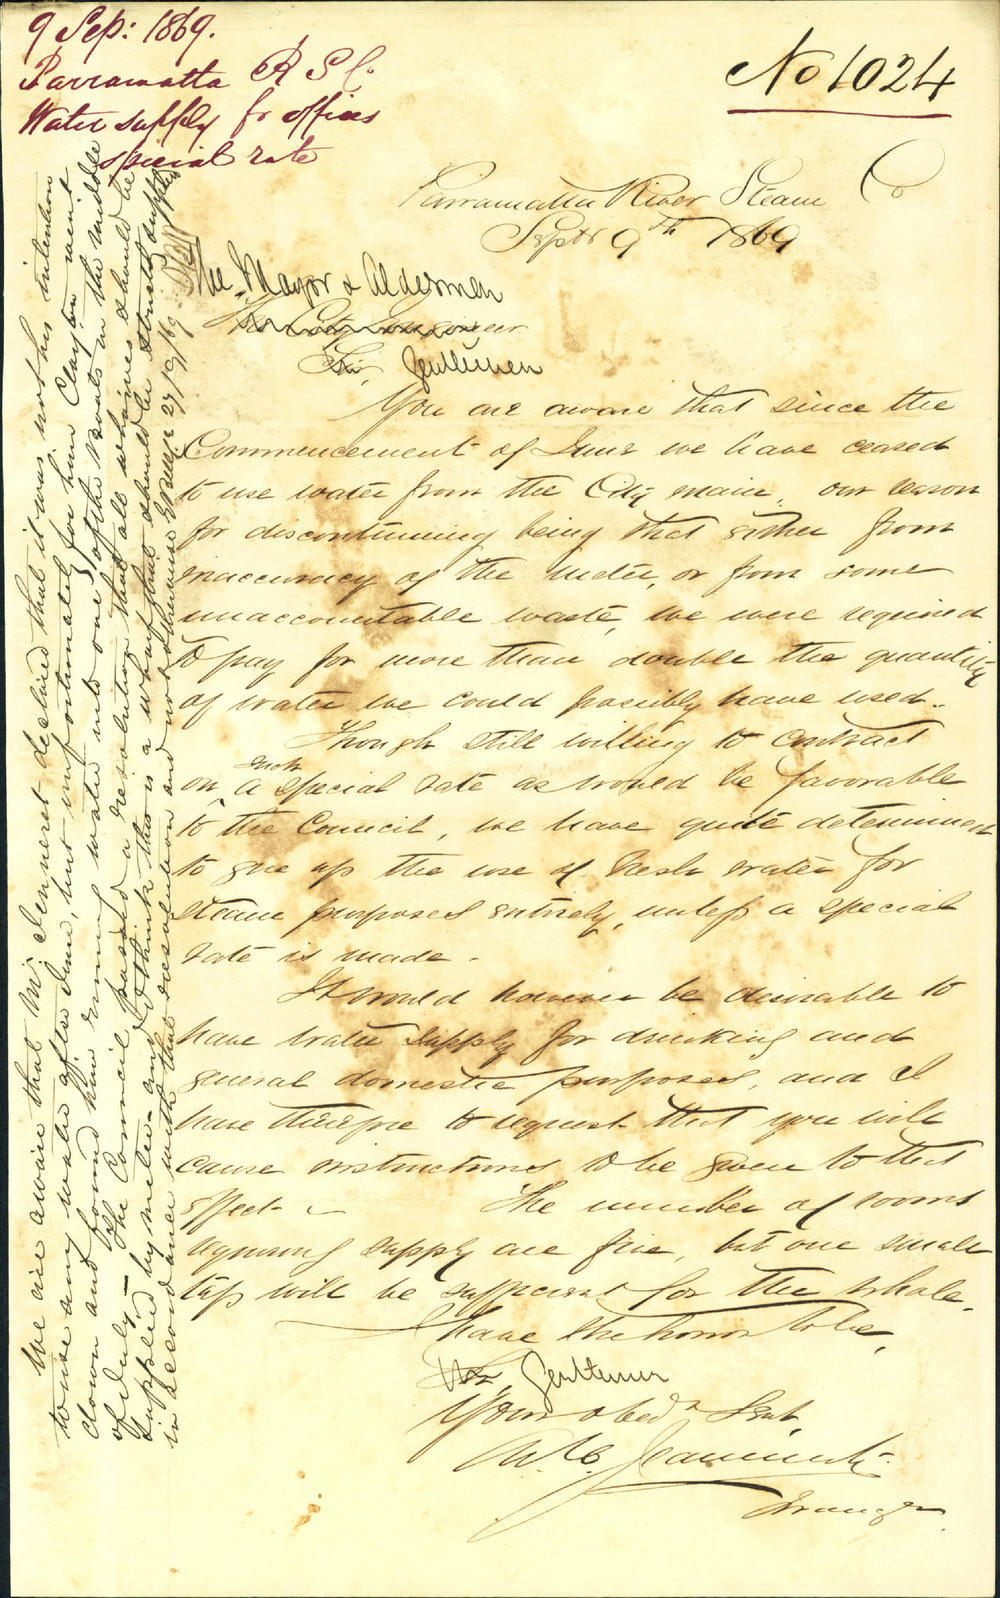 9 Sep: 1869.
Parramatta R S C.
Water supply for offices
special rate
No 1024
Parramatta River Steam Co
Septr 9th 1869
The Mayor & Aldermen
The City Engineer
Sir, Gentlemen
You are aware that since the
Commencement of June we have ceased
to use water from the City main, our reason
for discontinuing being that either from
inaccuracy of the meter, or from some
unaccountable waste, we were required
to pay for more than double the quantity
of water we could possibly have used.
Though still willing to contract
on such a special rate as would be favorable
to the Council, we have quite determined
to give up the use of fresh water for
steam purposes entirely, unless a special
rate is made.
It would however be desirable to
have water supply for drinking and
general domestic purposes, and I
have therefore to request that you will
cause instructions to be given to that
effect. The number of rooms
requiring supply are five, but one small
tap will be sufficient for the whole.
I have the honor to be,
Sir, Gentlemen
Your obedt Servt,
Manager
We are aware that Mr. Jenneret declared that it was not his intention
to use any water after June, but unfortunately for him Clayton went
down and found him running water into one of the boats in the middle
of July - The Council passed a resolution that all wharves should be
supplied by meter - and I think this is a wharf that should be strictly supplied
in accordance with that resolution and not otherwise 27/9/69